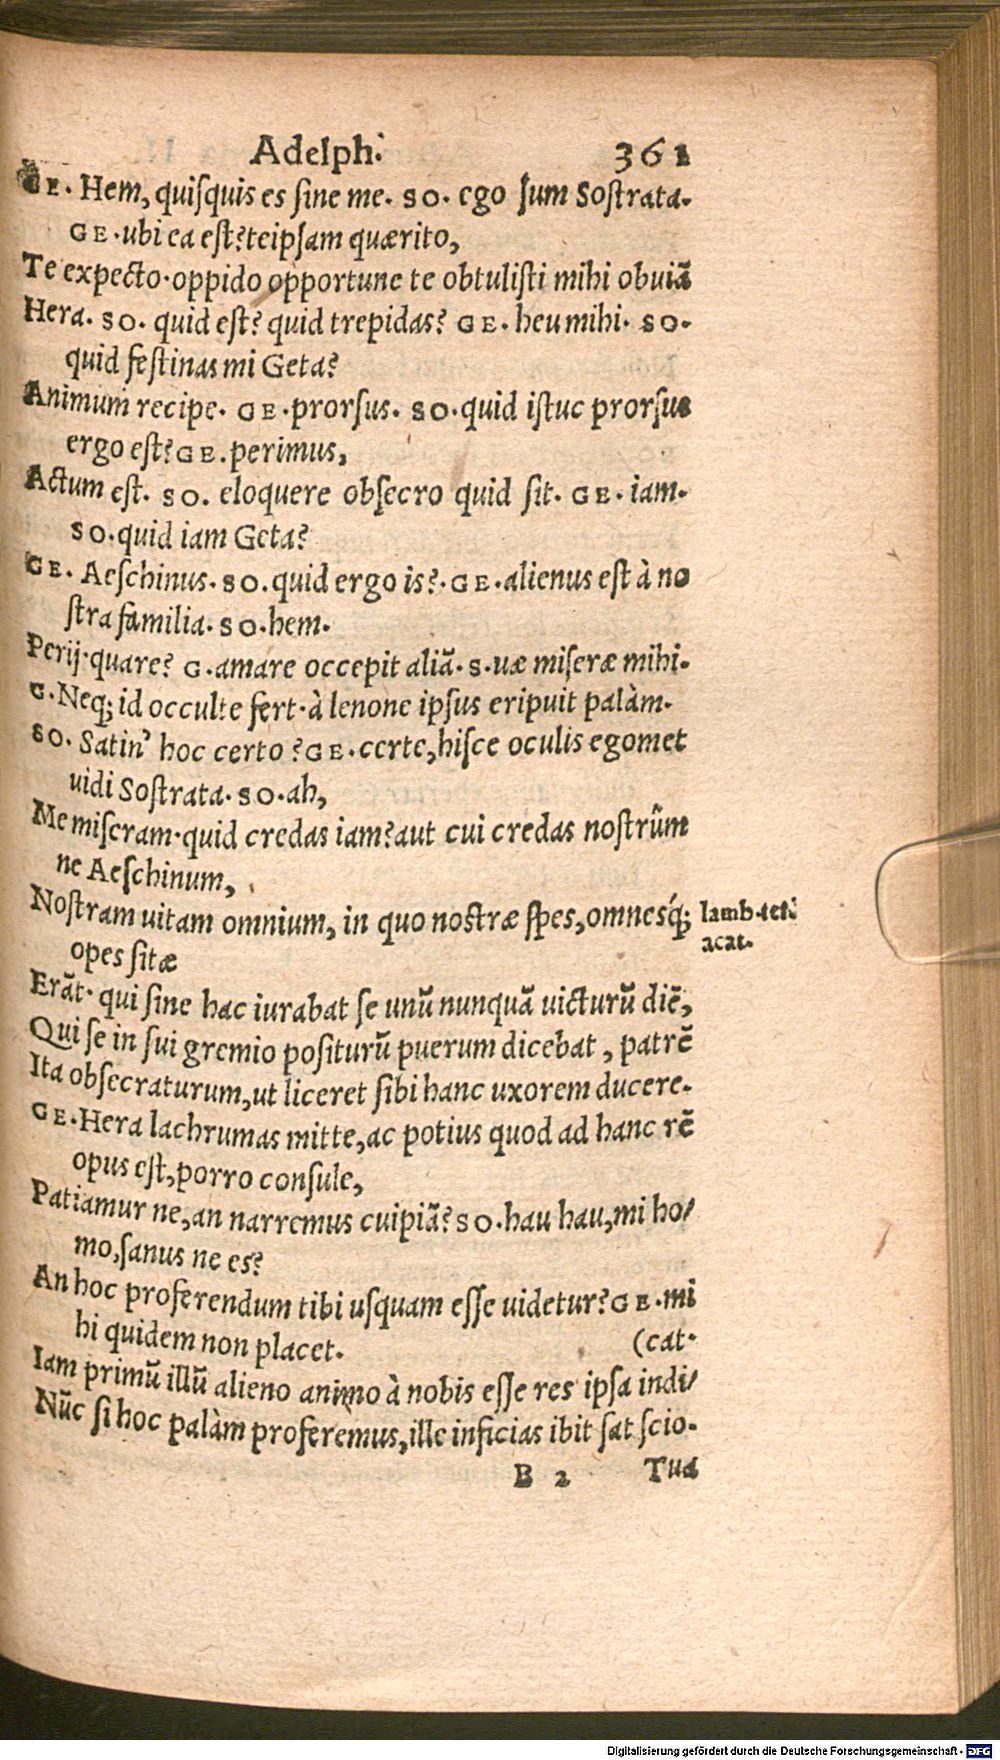 Adelph. 361
GE. Hem, quiſquis es ſine me. SO. ego ſum Soſtrata.
GE. ubi ea eſt? teipſam quærito,
Te expecto. oppido opportune te obtuliſti mihi obuiã
Hera. SO. quid eſt? quid trepidas? GE. heu mihi. SO.
quid feſtinas mi Geta?
Animum recipe. GE. prorſus. SO. quid iſtuc prorſus
ergo eſt? GE. perimus,
Actum eſt. SO. eloquere obſecro quid ſit. GE. iam.
SO. quid iam Geta?
GE. Aeſchinus. SO. quid ergo is?. GE. alienus eſt à no
ſtra familia. SO. hem.
Perij. quare? G. amare occepit aliã. S. uæ miſeræ mihi.
G. Neq; id occulte fert. à lenone ipſus eripuit palàm.
SO. Satin' hoc certo? GE. certe, hiſce oculis egomet
uidi Soſtrata. SO. ah,
Me miſeram. quid credas iam? aut cui credas noſtrûm
ne Aeſchinum,
Noſtram uitam omnium, in quo noſtræ ſpes, omnesq́;
opes ſitæ
Iamb. tet.
acat.
Erãt. qui ſine hac iurabat ſe unũ nunquã uicturũ diẽ,
Qui ſe in ſui gremio poſiturũ puerum dicebat, patrẽ
Ita obſecraturum, ut liceret ſibi hanc uxorem ducere.
GE. Hera lachrumas mitte, ac potius quod ad hanc rẽ
opus eſt, porro conſule,
Patiamur ne, an narremus cuipiã? SO. hau hau, mi ho/
mo, ſanus ne es?
An hoc proferendum tibi uſquam eſſe uidetur? GE. mi
hi quidem non placet. (cat.
Iam primũ illũ alieno animo à nobis eſſe res ipſa indi/
Nũc ſi hoc palàm proferemus, ille inficias ibit ſat ſcio.
B 2 Tua
Digitalisierung gefördert durch die Deutsche Forschungsgemeinschaft - DFG